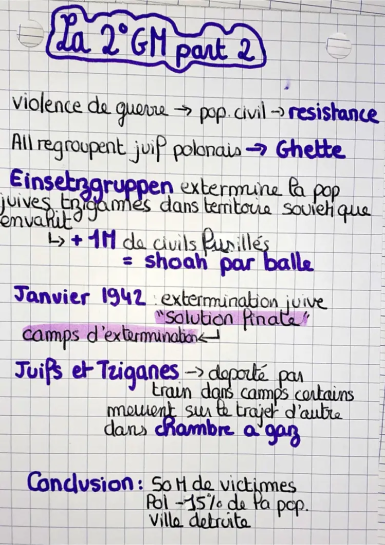 La 2° GM part 2
violence de guerre → pop. civil → resistance
All regroupent juif polonais → Ghette
Einsetzgruppen extermine la pop
juives, tzigannes dans territoire sovietique
envahit
↳ + 1M de civils fusillés
= shoah par balle
Janvier 1942 : extermination juive
"solution finale"
camps d'extermination ↵
Juifs et Tziganes → deporté par
train dans camps certains
meurent sur le trajet d'autre
dans chambre a gaz
Conclusion : 50 M de victimes
Pol -15% de la pop.
Ville detruite